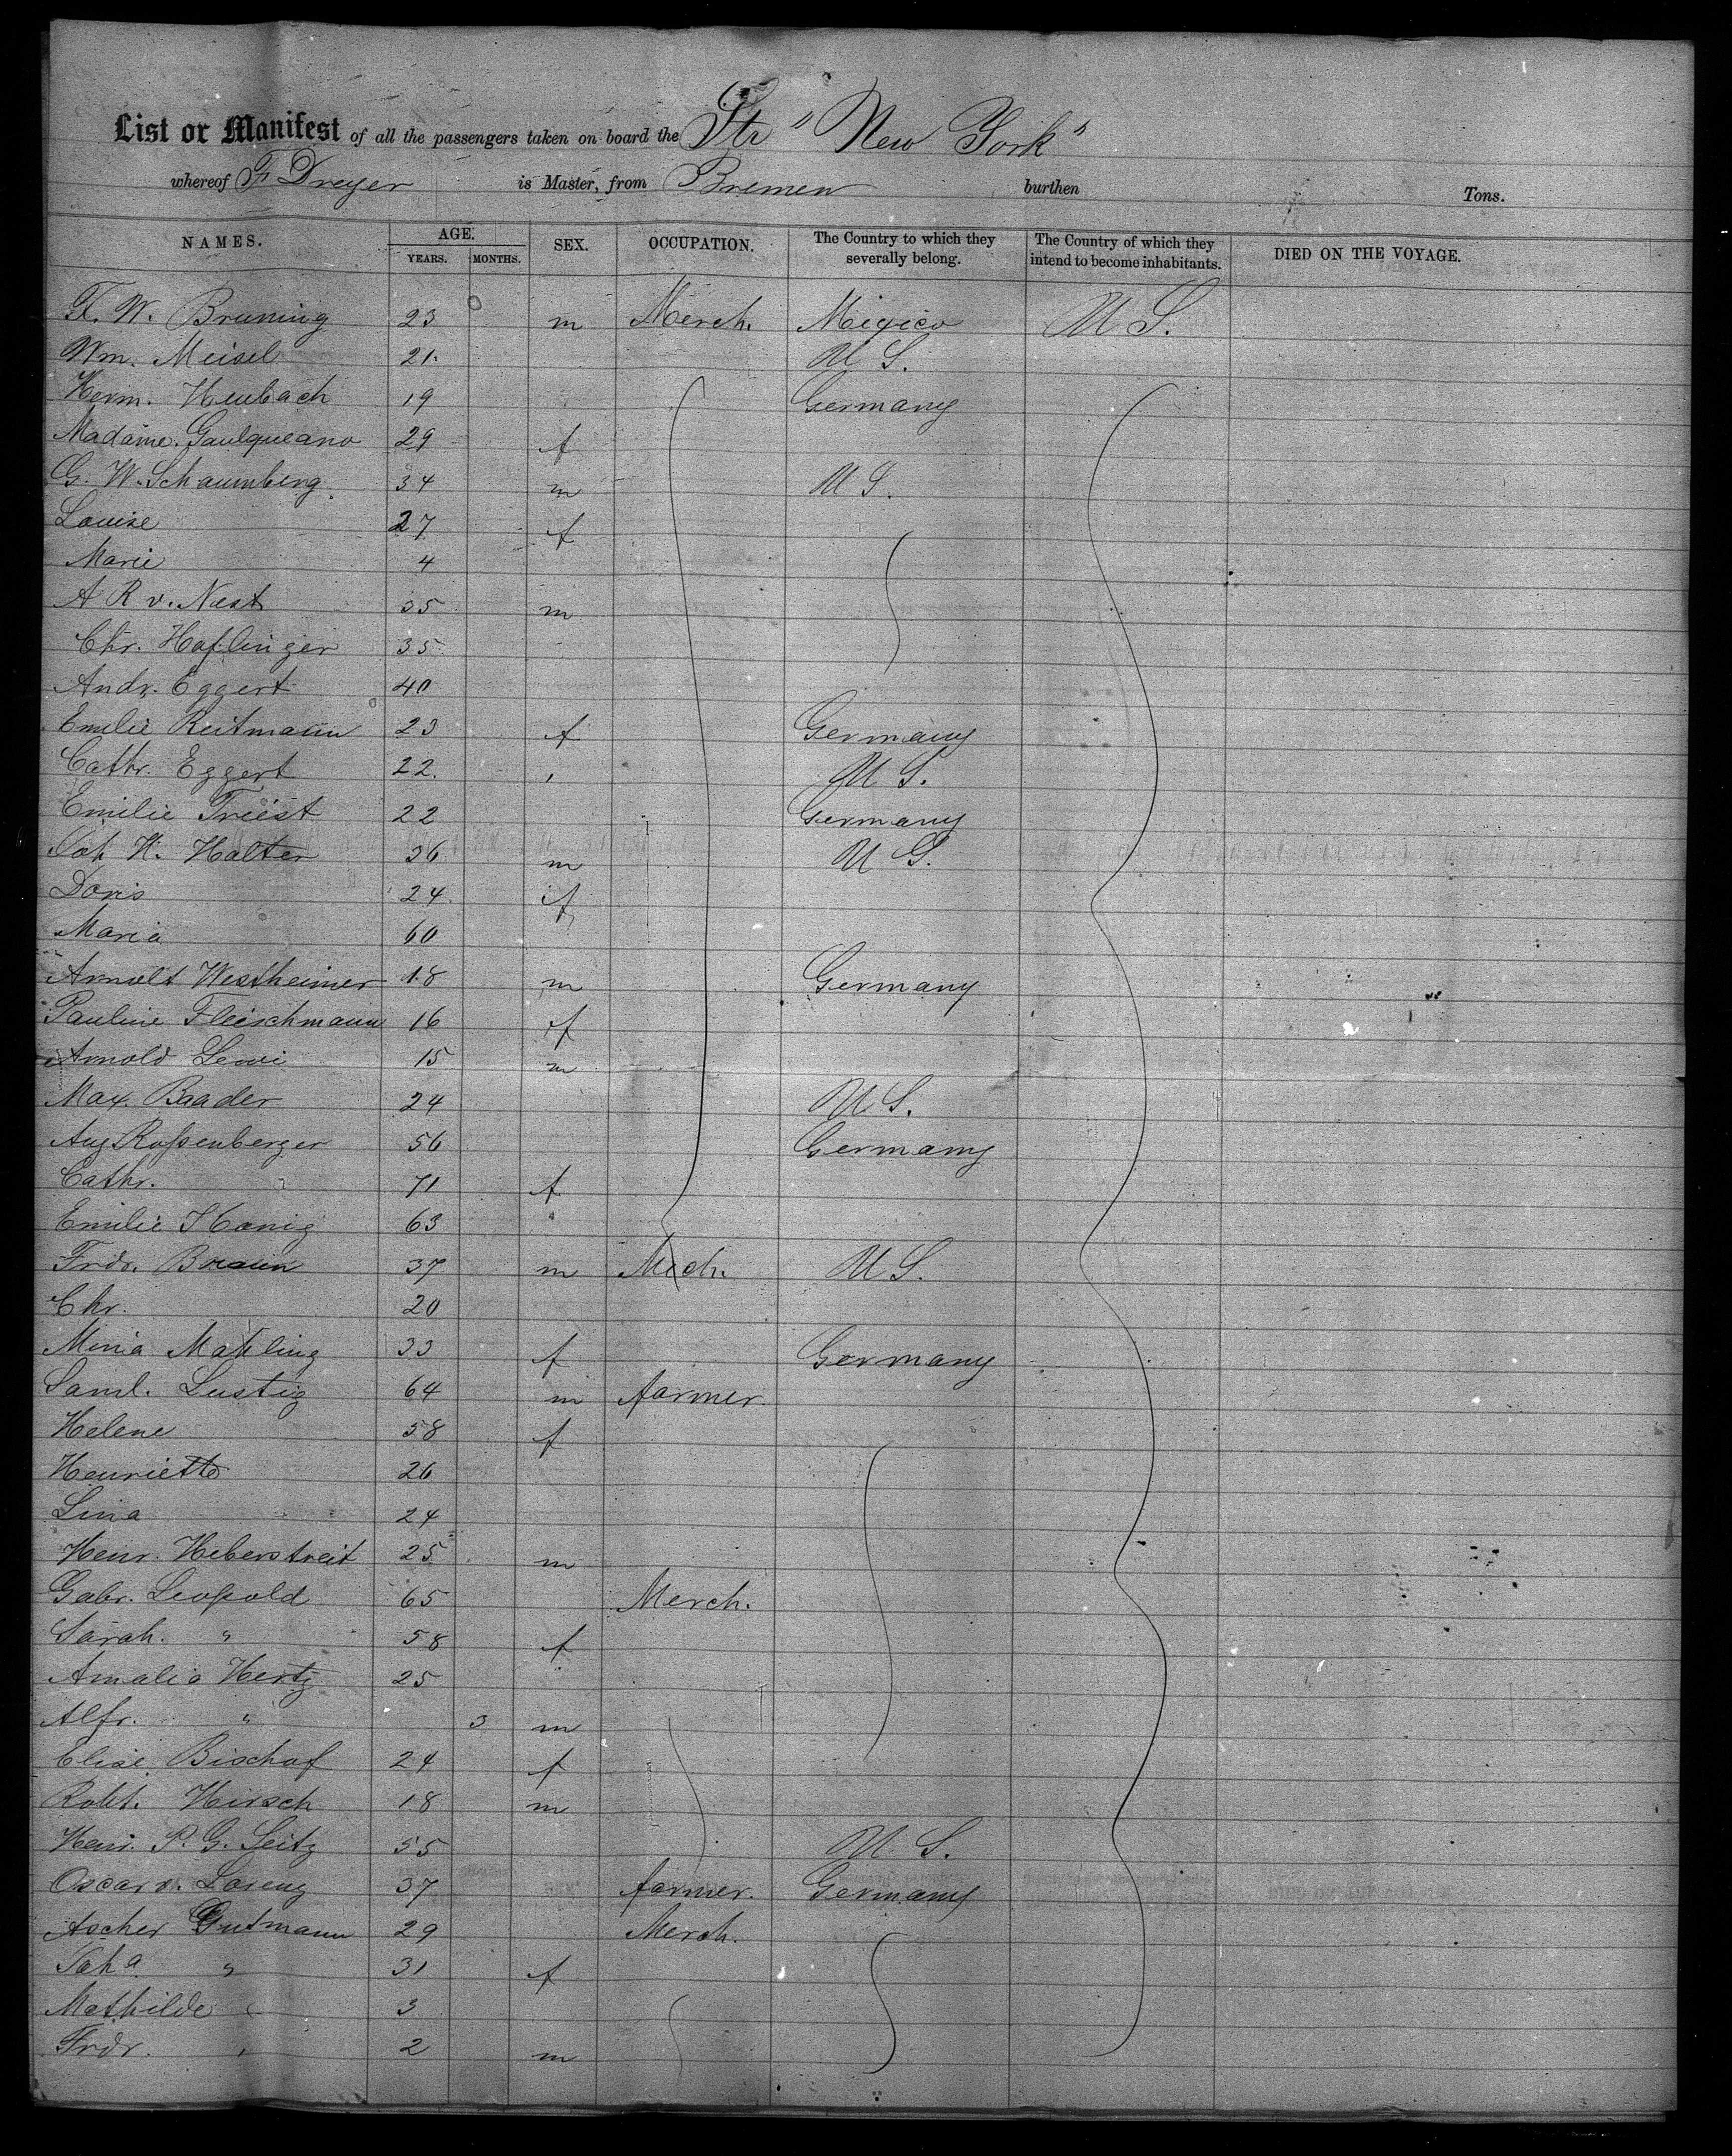 List or Manifest of all the passengers taken on board the Str "New York"
whereof F Dreyer is Master, from Bremen burthen Tons.
NAMES. AGE. YEARS. MONTHS. SEX. OCCUPATION. The Country to which they severally belong. The Country of which they intend to become inhabitants. DIED ON THE VOYAGE.
F. W. Bruning 23 m Merch. Mexico U S.
Wm. Meisel 21. U S.
Herm. Heubach 19 Germany
Madame. Gaulqueano 29 f
G. W. Schaumberg 34 m U S.
Louise 27 f
Marie 4
A R v. Nest 35 m
Chr. Haflinger 35
Andr. Eggert 40
Emilie Reitmann 23 f Germany
Cathr. Eggert 22. U S.
Emilie Triest 22 Germany
Joh H. Halter 36 m U S.
Doris 24 f
Maria 60
Arnolt Westheimer 18 m Germany
Pauline Fleischmann 16 f
Arnold Lewi 15 m
Max. Baader 24 U S.
Aug Roßenberger 56 Germany
Cathr. " 71 f
Emilie Honig 63 "
Frdr. Braun 37 m Mech. U S.
Chr. 20
Minia 33 f Germany
Saml. Lustig 64 m farmer
Helene 58 f
Henriette 26
Lina 24
Heinr. Heberstreit 25 m
Gabr. Leopold 65 Merch.
Sarah. " 58 f
Amalia Hertz 25 "
Alfr. " 3 m
Elise Bischof 24 f
Robt. Hirsch 18 m
Henr. P. G. Seitz 55 U S.
Oscar v. Lorenz 37 farmer. Germany
Ascher Gutmann 29 Merch.
" 31 f
Mathilde " 3
Frdr. " 2 m